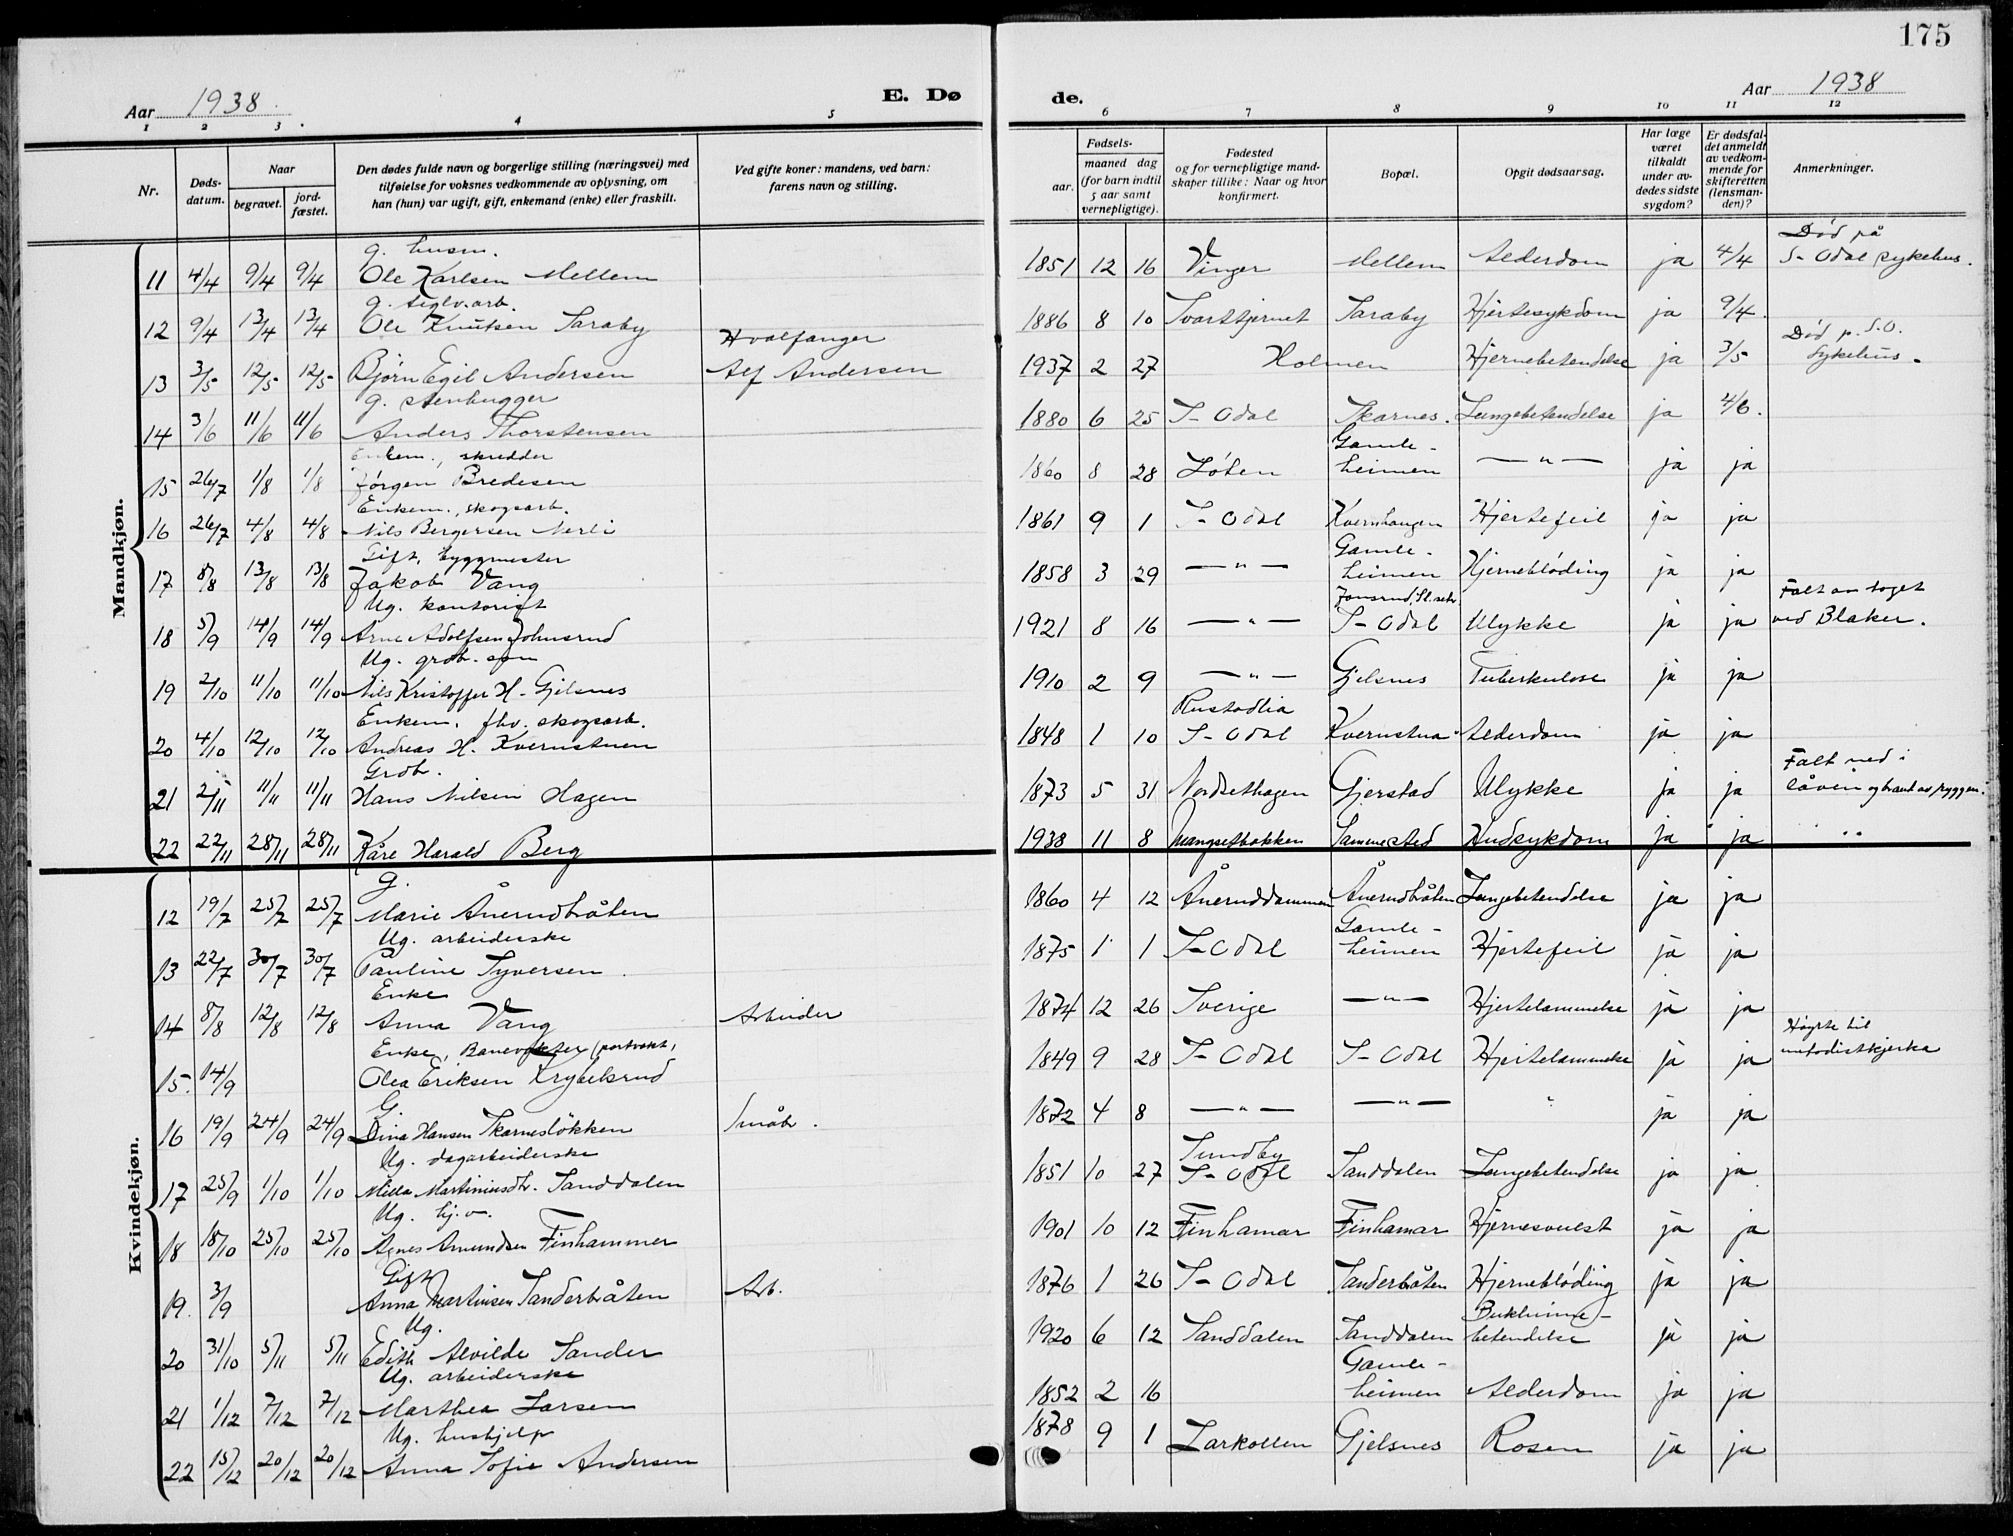 175
Aar 1938 E. Dø de. Aar 1938
1 2 3 4 5 6 7 8 9 10 11 12
Nr. Døds-datum. Naar begravet. jord-fæstet. Den dødes fulde navn og borgerlige stilling (næringsvei) med tilføielse for voksnes vedkommende av oplysning, om han (hun) var ugift, gift, enkemand (enke) eller fraskilt. Ved gifte koner: mandens, ved barn: farens navn og stilling. Fødsels- aar. maaned dag (for barn indtil 5 aar samt vernepligtige). Fødested og for vernepligtige mandskaper tillike: Naar og hvor konfirmert. Bopæl. Opgit dødsaarsag. Har læge været tilkaldt under avdødes sidste sygdom? Er dødsfaldet anmeldt av vedkommende for skifteretten (lensmanden)? Anmerkninger.
Mandkjøn.
g. husm. Død på
11 4/4 9/4 9/4 Ole Karlsen Mellem 1851 12 16 Vinger Mellem Alderdom ja 4/4 S-Odal sykehus.
g. teglv.arb.
12 9/4 13/4 13/4 Ole Knutsen Taraby 1886 8 10 Svarttjernet Taraby Hjertesykdom ja 9/4
Hvalfanger Død p. S.O.
13 3/5 12/5 12/5 Bjørn Egil Andersen Alf Andersen 1937 2 27 Holmen Hjernebetendelse ja 3/5 Sykehus.
g. stenhugger
14 3/6 11/6 11/6 Anders Thorstensen 1880 6 25 S-Odal Skarnes. Lungebetendelse ja 4/6.
Enkem., skredder Gamle-
15 26/7 1/8 1/8 Jørgen Bredesen 1860 8 28 Løten heimen — " — ja ja
Enkem., skogsarb.
16 26/7 4/8 4/8 Nils Bergersen Nerli 1861 9 1 S-Odal Kvernhaugen Hjertefeil ja ja
Gift, byggmester Gamle-
17 8/8 13/8 13/8 Jakob Vang 1858 3 29 — " — heimen Hjerneblöding ja ja
Ug. kontorist Falt av toget
18 5/9 14/9 14/9 Arne Adolfsen Johnsrud 1921 8 16 — " — S-Odal Ulykke ja ja ved Blaker.
Ug. grdb. søn
19 2/10 11/10 11/10 Nils Kristoffer H. Gjelsnes 1910 2 9 — " — Gjelsnes Tuberkulose ja ja
Enkem. fhv. skogsarb. Rustadlia
20 4/10 12/10 12/10 Andreas H. Kvernstuen 1848 1 10 S-Odal Kvernstua Alderdom ja ja
Grdb. Falt ned i
21 2/11 11/11 11/11 Hans Nilsen Hagen 1873 5 31 Nordsethagen Gjerstad Ulykke ja ja låven og brand av ryggen.
22 22/11 28/11 28/11 Kåre Harald Berg 1938 11 8 Mangsetbakken Sammested Hudsykdom ja ja
Kvindekjøn.
G.
12 19/7 25/7 25/7 Marie Ånerudbråten 1860 4 12 Åneruddammen Ånerudbråten Lungebetendelse ja ja
Ug. arbeiderske Gamle-
13 22/7 30/7 30/7 Pauline Syversen 1875 1 1 S-Odal heimen Hjertefeil ja ja
Enke
14 8/8 12/8 12/8 Anna Vang Arbeider 1874 12 26 Sverige — " — Hjertelammelse ja ja
Enke, Banevokter (portvakt) Høyrte til
15. 14/9 Olea Eriksen Krybelsrud 1849 9 28 S-Odal S-Odal Hjertelammelse ja ja metodistkjerka
G.
16 19/9 24/9 24/9 Dina Hansen Skarnesløkken Småbr. 1872 4 8 — " — — " — " ja ja
Ug. dagarbeiderske Sundby
17 25/9 1/10 1/10 Milla Martiniusdtr. Sanddalen 1851 10 27 S-Odal Sanddalen Lungebetendelse ja ja
Ug. hj.v.
18 18/10 25/10 25/10 Agnes Amundsen Finhammer 1901 10 12 Finhamar Finhamar Hjernesvulst ja ja
Gift
19. 3/9 Anna Martinsen Sanderbråten Arb. 1876 1 26 S-Odal Sanderbråten Hjerneblöding ja ja
Ug. Bukhinne-
20 31/10 5/11 5/11 Edith Alvilde Sander 1920 6 12 Sanddalen Sanddalen betendelse ja ja
Ug. arbeiderske Gamle-
21 1/12 7/12 7/12 Marthea Larsen 1852 2 16 heimen Alderdom ja ja
Ug. hushjelp
22 15/12 20/12 20/12 Anna Sofie Andersen 1878 9 1 Larkollen Gjelsnes Rosen ja ja